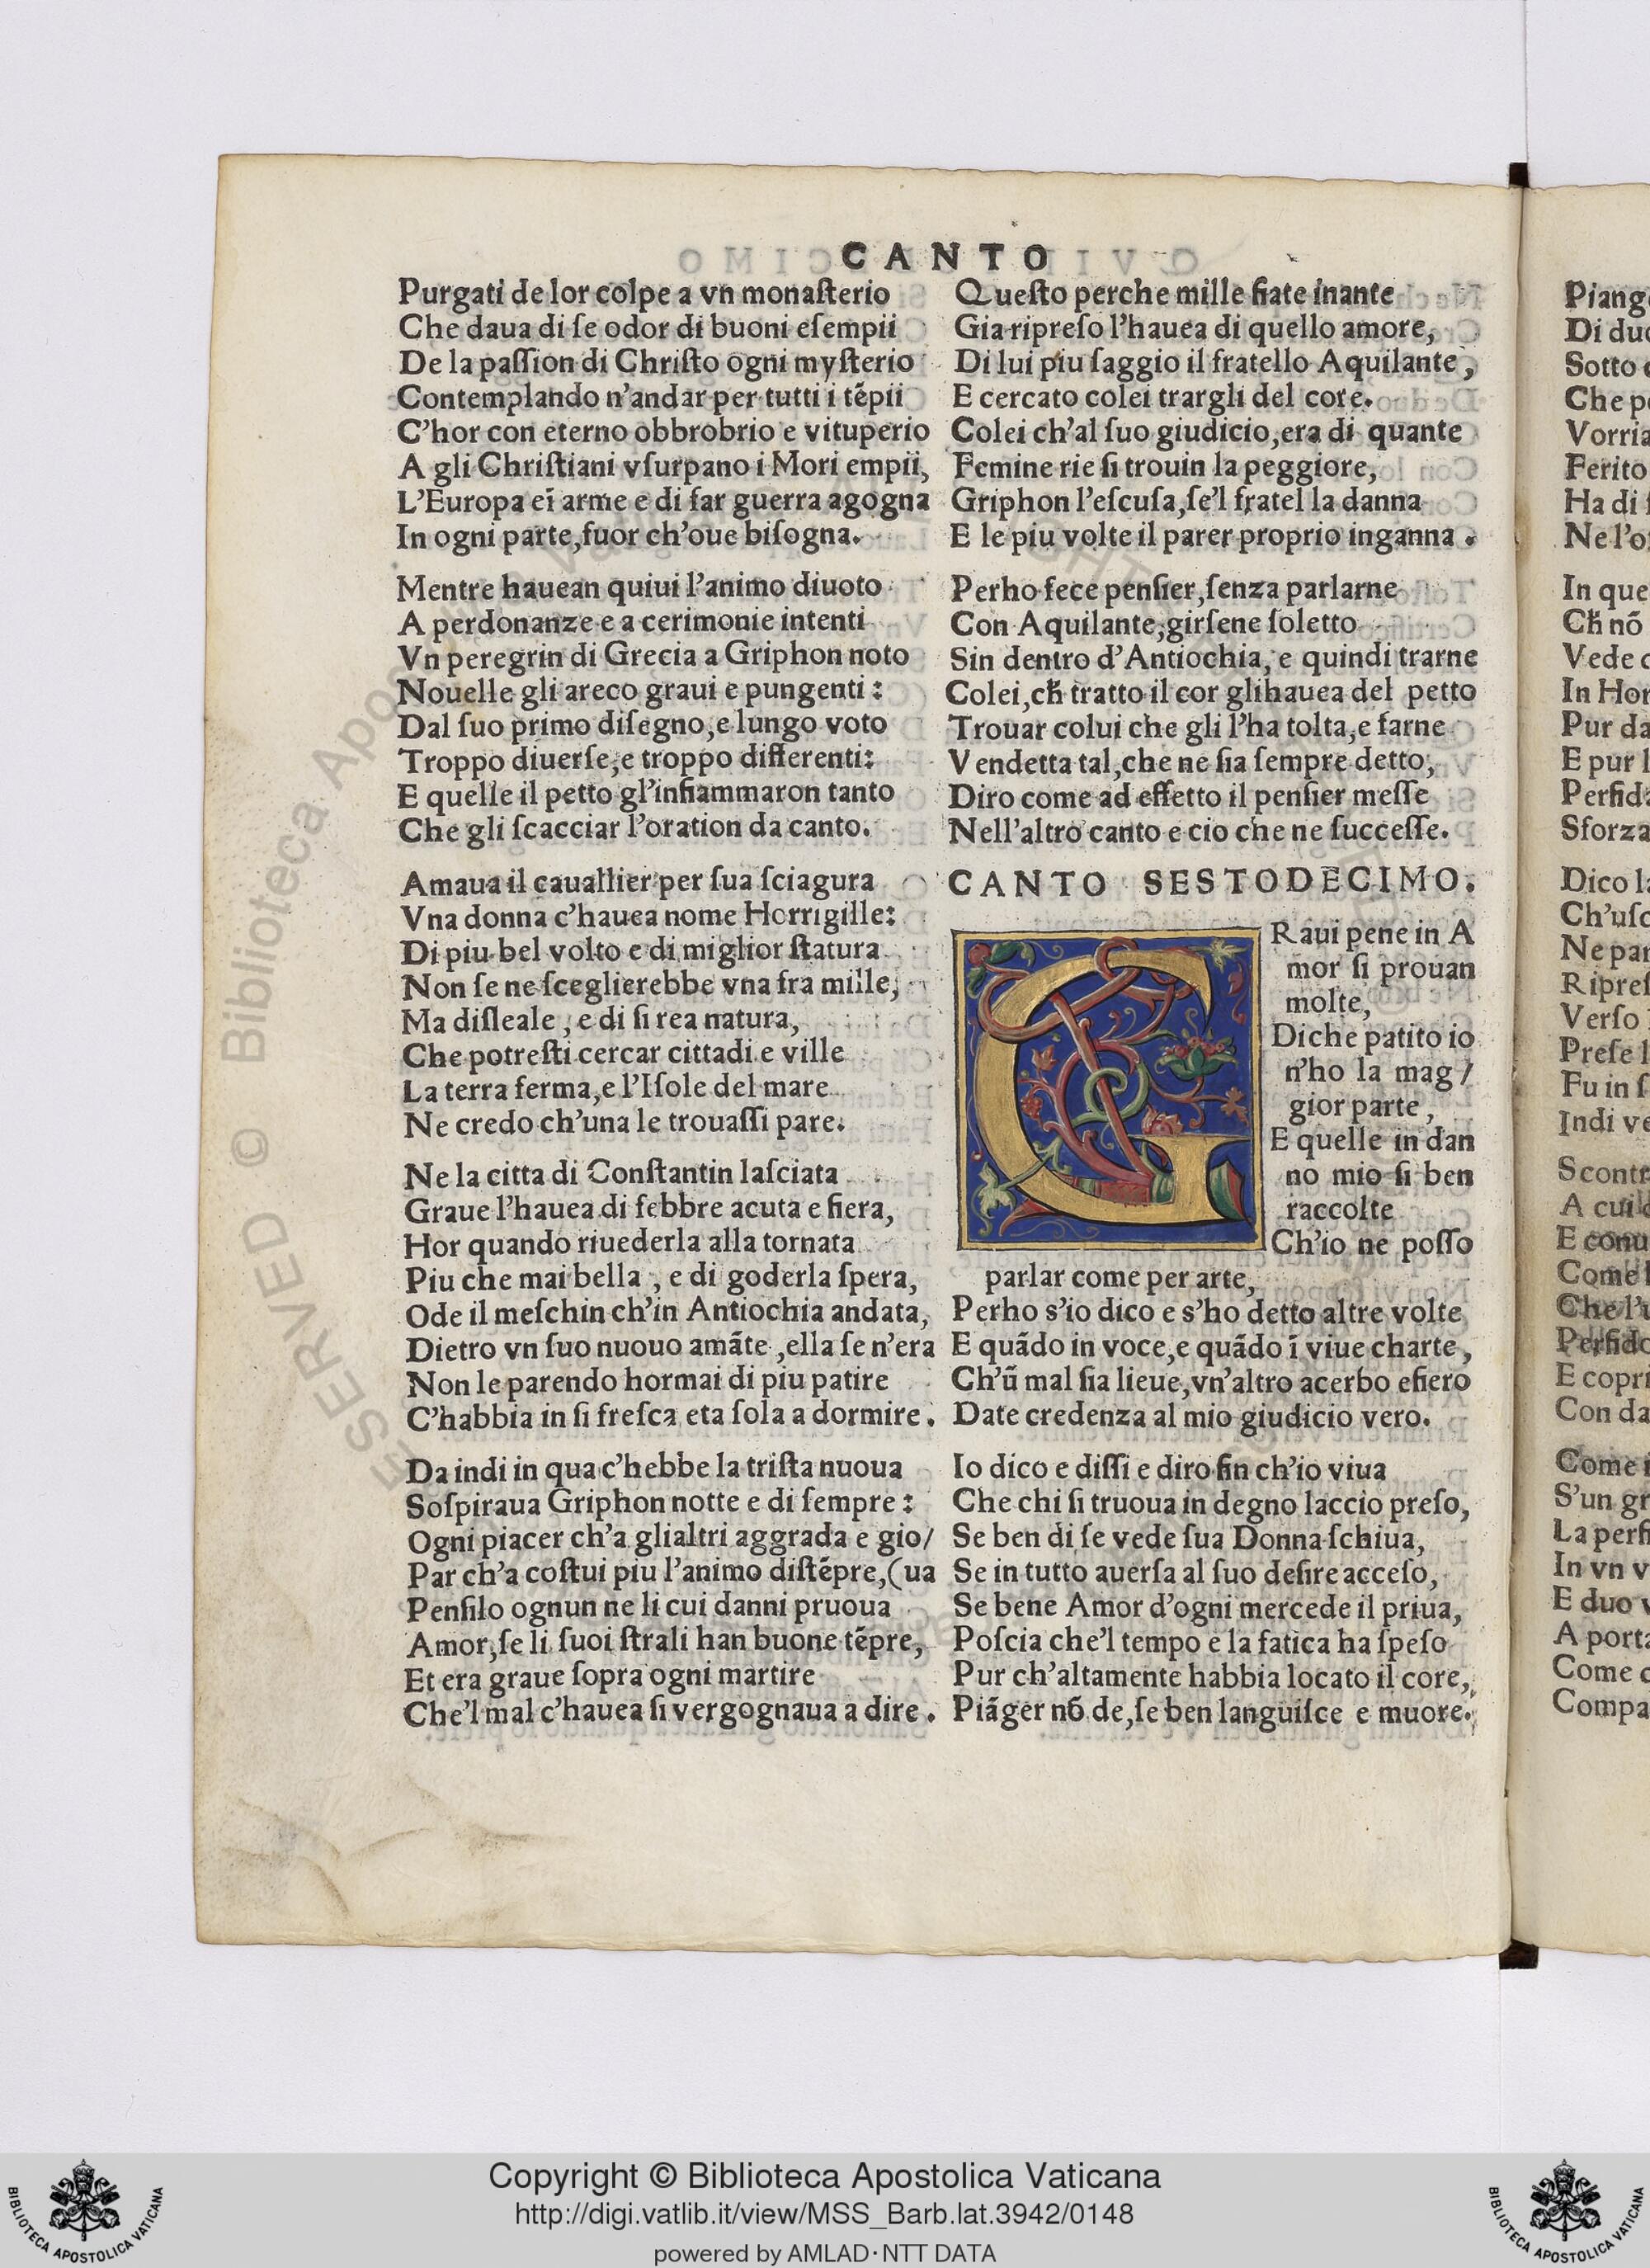 CANTO
Purgati de lor colpe a vn monaſterio
Che daua di ſe odor di buoni eſempii
De la paſſion di Chriſto ogni myſterio
Contemplando n'andar per tutti i tẽpii
C'hor con eterno obbrobrio e vituperio
A gli Chriſtiani vſurpano i Mori empii,
L'Europa eĩ arme e di far guerra agogna
In ogni parte,fuor ch'oue biſogna.
Mentre hauean quiui l'animo diuoto
A perdonanze e a cerimonie intenti
Vn peregrin di Grecia a Griphon noto
Nouelle gli areco graui e pungenti:
Dal ſuo primo diſegno,e lungo voto
Troppo diuerſe,e troppo differenti:
E quelle il petto gl'infiammaron tanto
Che gli ſcacciar l'oration da canto.
Amaua il cauallier per ſua ſciagura
Vna donna c'hauea nome Horrigille:
Di piu bel volto e di miglior ſtatura
Non ſe ne ſceglierebbe vna fra mille,
Ma diſleale, e di ſi rea natura,
Che potreſti cercar cittadi e ville
La terra ferma,e l'Iſole del mare
Ne credo ch'una le trouaſſi pare.
Ne la citta di Conſtantin laſciata
Graue l'hauea di febbre acuta e fiera,
Hor quando riuederla alla tornata
Piu che mai bella, e di goderla ſpera,
Ode il meſchin ch'in Antiochia andata,
Dietro vn ſuo nuouo amãte,ella ſe n'era
Non le parendo hormai di piu patire
C'habbia in ſi freſca eta ſola a dormire.
Da indi in qua c'hebbe la triſta nuoua
Soſpiraua Griphon notte e di ſempre:
Ogni piacer ch'a glialtri aggrada e gio/
Par ch'a coſtui piu l'animo diſtẽpre,(ua
Penſilo ognun ne li cui danni pruoua
Amor,ſe li ſuoi ſtrali han buone tẽpre,
Et era graue ſopra ogni martire
Che'l mal c'hauea ſi vergognaua a dire.
Queſto perche mille fiate inante
Gia ripreſo l'hauea di quello amore,
Di lui piu ſaggio il fratello Aquilante,
E cercato colei trargli del core.
Colei ch'al ſuo giudicio,era di quante
Femine rie ſi trouin la peggiore,
Griphon l'eſcuſa,ſe'l fratel la danna
E le piu volte il parer proprio inganna.
Perho fece penſier,ſenza parlarne
Con Aquilante,girſene ſoletto
Sin dentro d'Antiochia, e quindi trarne
Colei,cħ tratto il cor glihauea del petto
Trouar colui che gli l'ha tolta,e farne
Vendetta tal,che ne ſia ſempre detto,
Diro come ad effetto il penſier meſſe
Nell'altro canto e cio che ne ſucceſſe.
CANTO SESTODECIMO.
GRaui pene in A
mor ſi prouan
molte,
Di che patito io
n'ho la mag/
gior parte,
E quelle in dan
no mio ſi ben
raccolte
Ch'io ne poſſo
parlar come per arte,
Perho s'io dico e s'ho detto altre volte
E quãdo in voce,e quãdo ĩ viue charte,
Ch'ũ mal ſia lieue,vn'altro acerbo efiero
Date credenza al mio giudicio vero.
Io dico e diſſi e diro fin ch'io viua
Che chi ſi truoua in degno laccio preſo,
Se ben di ſe vede ſua Donna ſchiua,
Se in tutto auerſa al ſuo deſire acceſo,
Se bene Amor d'ogni mercede il priua,
Poſcia che'l tempo e la fatica ha ſpeſo
Pur ch'altamente habbia locato il core,
Piãger nõ de,ſe ben languiſce e muore.
Piang
Di du
Sotto
Che p
Vorria
Ferito
Ha di
Ne l'o
In que
Cħ nõ
Vede
In Hor
Pur da
E pur l
Perfid
Sforza
Dico l
Ch'uſc
Ne par
Ripreſ
Verſo
Preſe l
Fu in ſ
Indi ve
Scontr
A cui
E conu
Come
Che l'
Perfido
E copri
Con da
Come
S'un gr
La perfi
In vn v
E duo v
A porta
Come
Compa
© Biblioteca Apo
ESERVED
Copyright © Biblioteca Apostolica Vaticana
http://digi.vatlib.it/view/MSS_Barb.lat.3942/0148
powered by AMLAD·NTT DATA
BIBLIOTECA APOSTOLICA VATICANA
BIBLIOTECA APOSTOLICA VATICANA